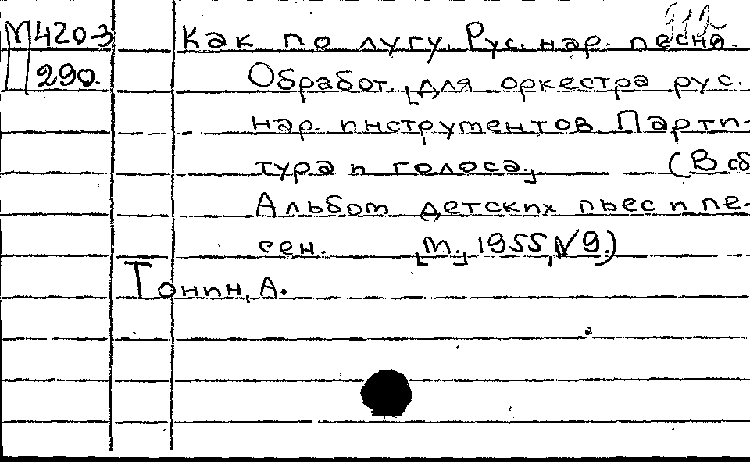 М420-3 Как по лугу. Рус. нар. песня.
290. Обработ. для оркестра рус.
нар. инструментов. Парти-
тура и голоса, (В сб
Альбом детских пьес и пе-
сен. М., 1955, №9.)
Тонин, А.